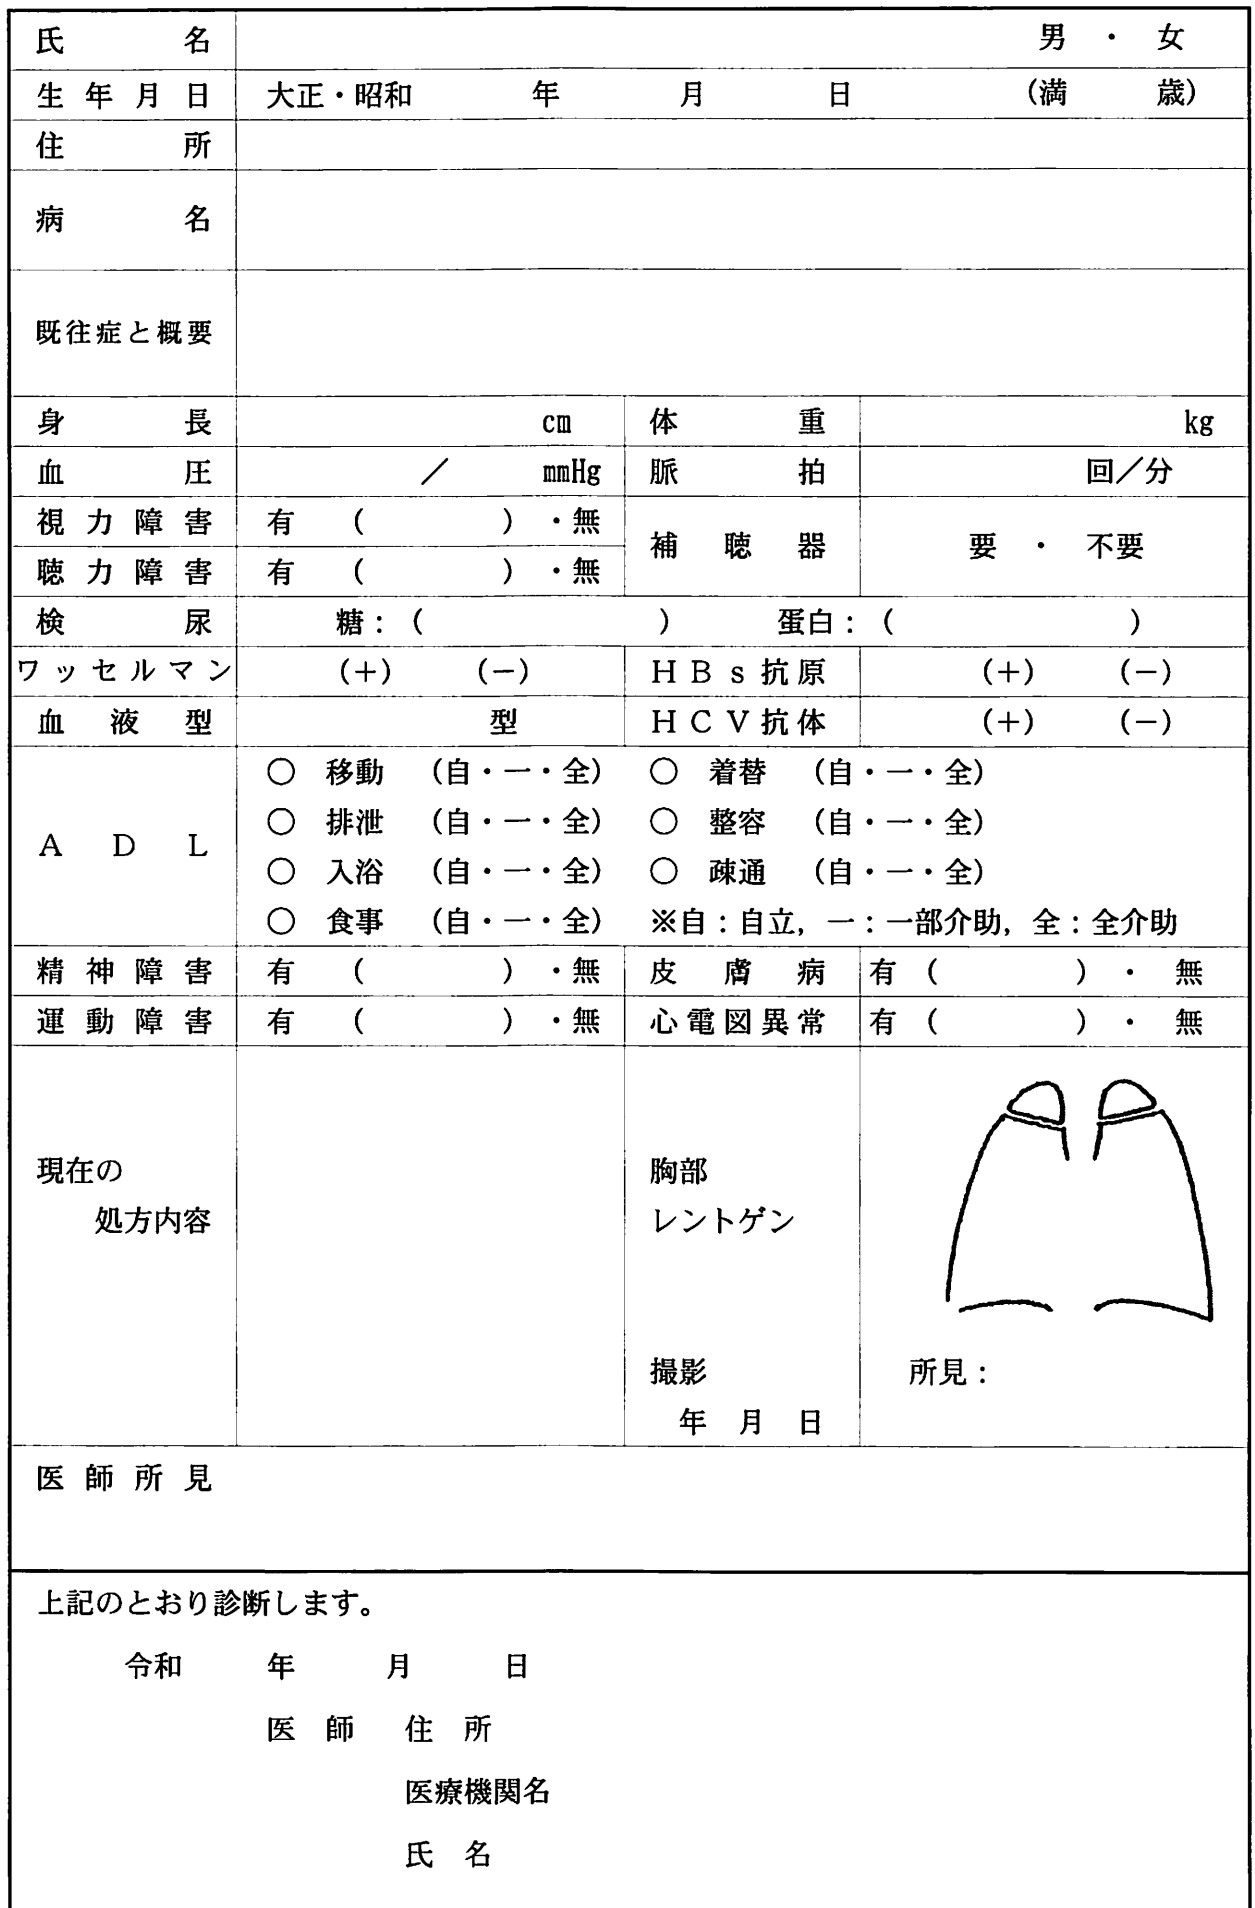 氏 名 男 ・ 女
生 年 月 日 大正・昭和 年 月 日 (満 歳)
住 所
病 名
既往症と概要
身 長 cm 体 重 kg
血 圧 ／ mmHg 脈 拍 回／分
視 力 障 害 有 ( ) ・無
補 聴 器 要 ・ 不要
聴 力 障 害 有 ( ) ・無
検 尿 糖：( ) 蛋白：( )
ワッセルマン (＋) (－) ＨＢｓ抗原 (＋) (－)
血 液 型 型 ＨＣＶ抗体 (＋) (－)
Ａ Ｄ Ｌ
○ 移動 (自・一・全) ○ 着替 (自・一・全)
○ 排泄 (自・一・全) ○ 整容 (自・一・全)
○ 入浴 (自・一・全) ○ 疎通 (自・一・全)
○ 食事 (自・一・全) ※自：自立，一：一部介助，全：全介助
精 神 障 害 有 ( ) ・無 皮 膚 病 有 ( ) ・ 無
運 動 障 害 有 ( ) ・無 心電図異常 有 ( ) ・ 無
現在の
処方内容
胸部
レントゲン
撮影
年 月 日
所見：
医 師 所 見
上記のとおり診断します。
令和 年 月 日
医 師 住 所
医療機関名
氏 名